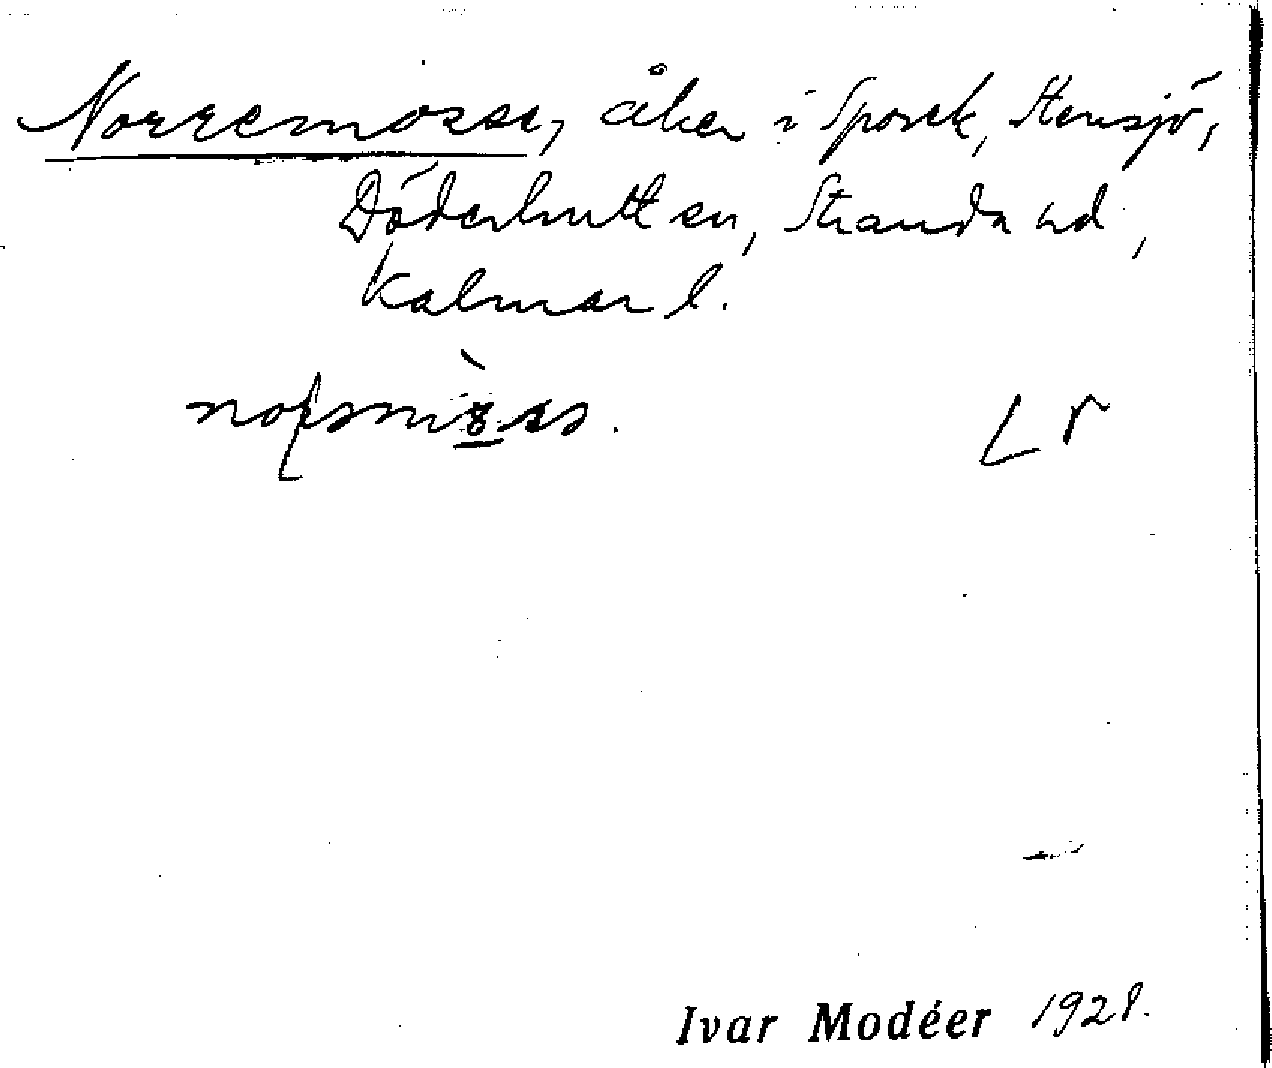 Norremosse, åker i Sporek, Stensjö,
Döderhult sn, Stranda hd,
Kalmar l.
Ivar Modéer 1928.